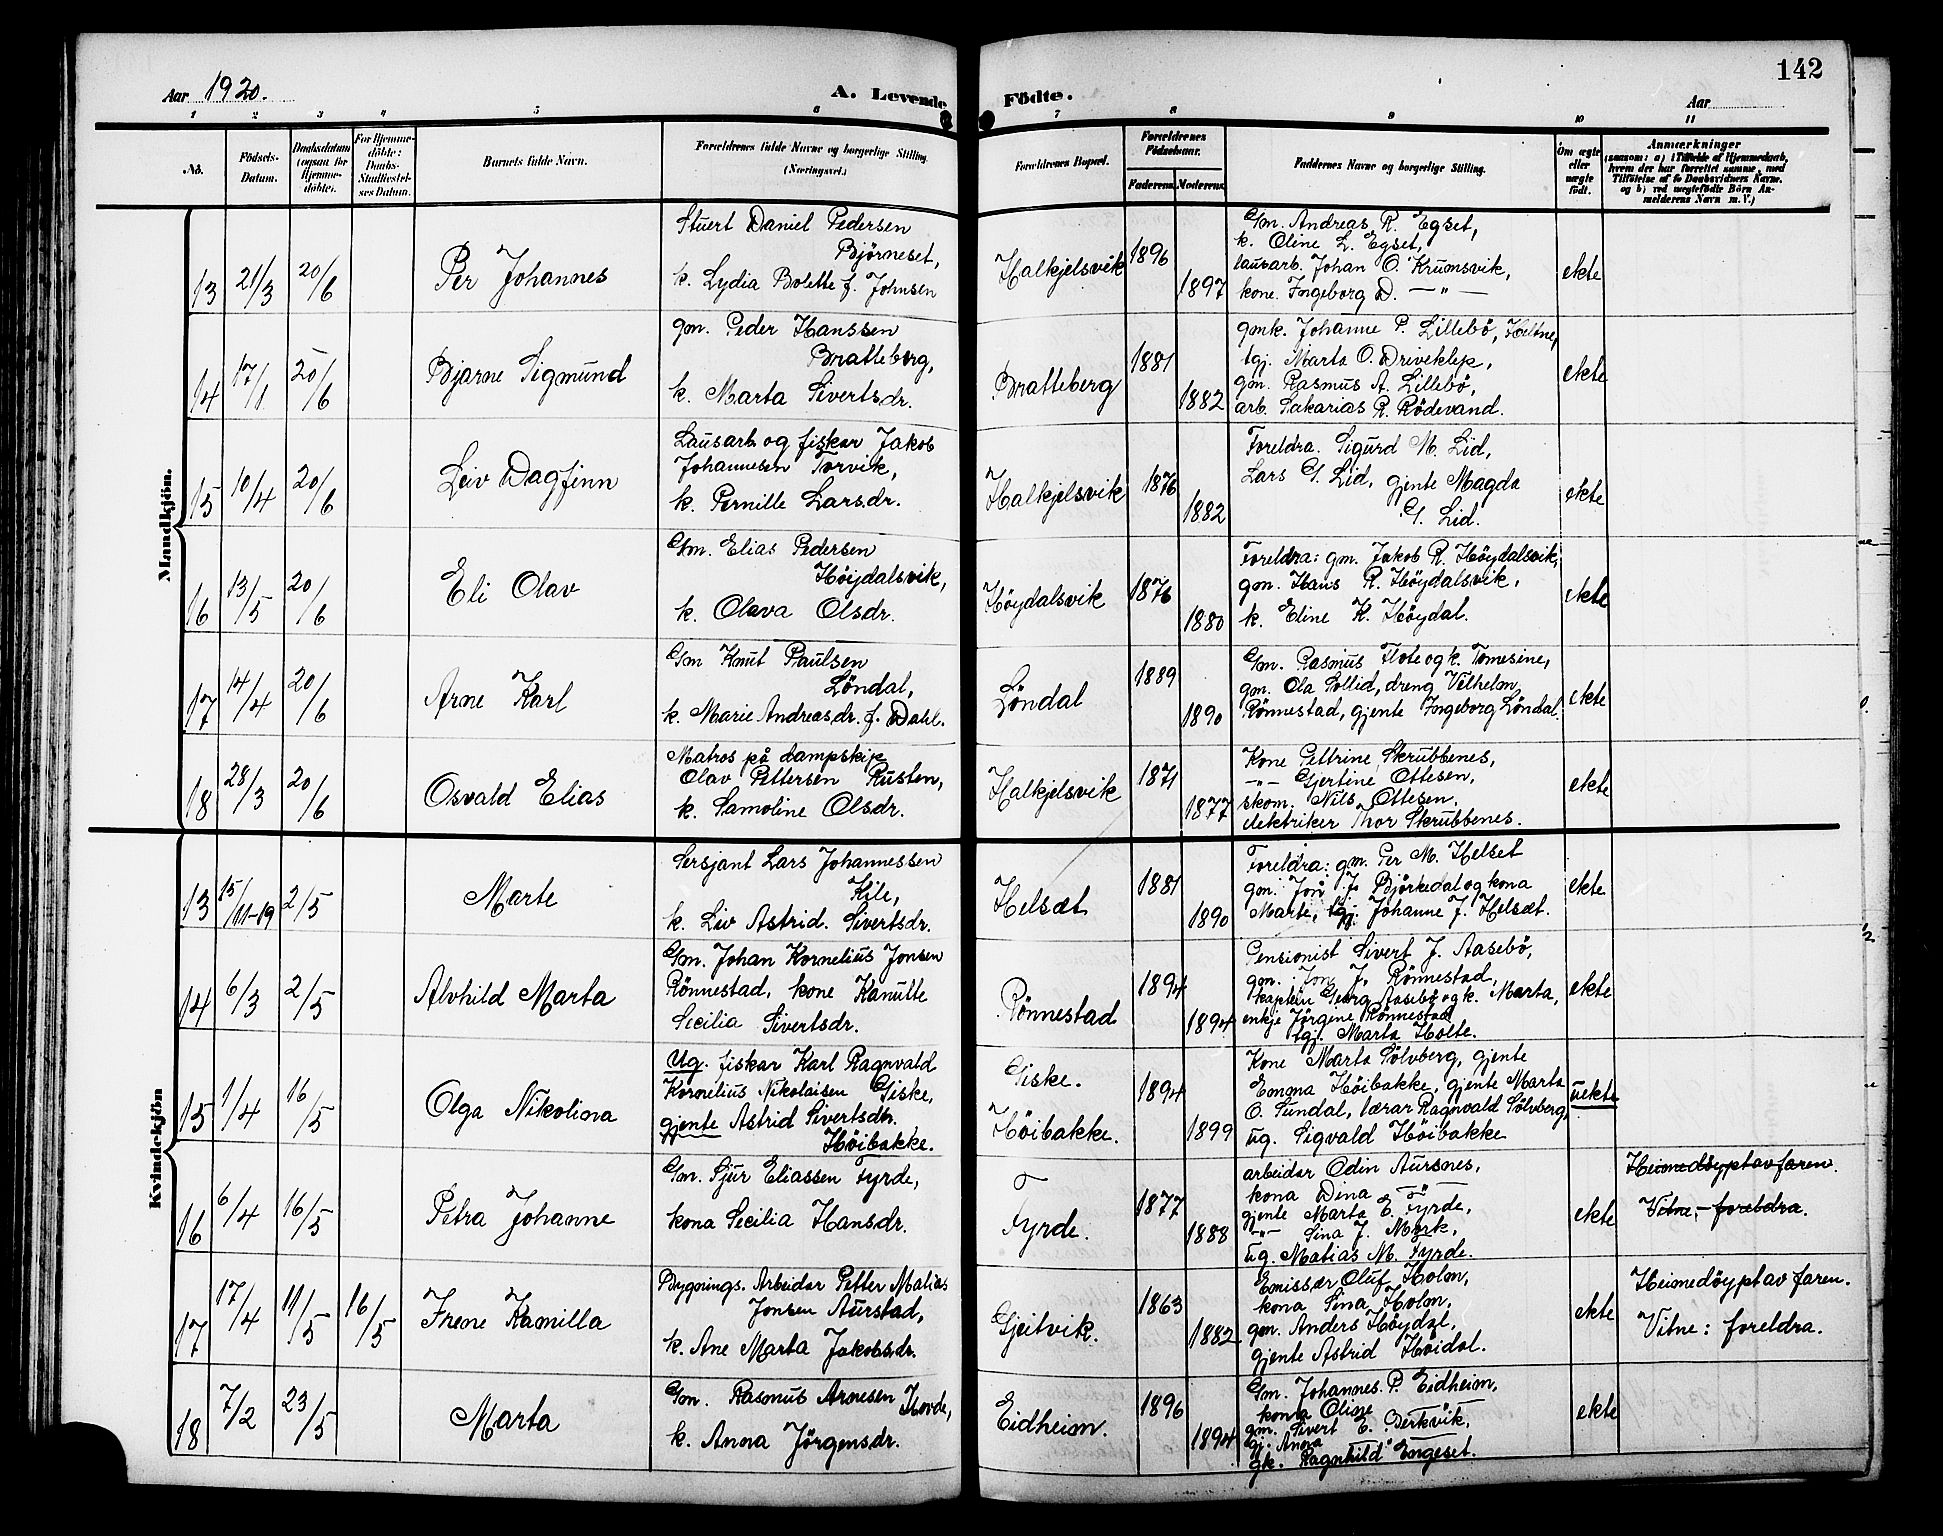 142
Aar 1920.
A. Levende Födte.
Aar
1 2 3 4 5 6 7 8 9 10 11
No.
Födsels-Datum.
Daabsdatum (ogsaa for Hjemmedöbte).
For Hjemmedöbte: Daabs-Stadfæstelses Datum.
Barnets fulde Navn.
Forældrenes fulde Navne og borgerlige Stilling. (Næringsvei.)
Forældrenes Bopæl.
Forældrenes Födselsaar.
Faderens. Moderens.
Faddernes Navne og borgerlige Stilling.
Om ægte eller uægte födt.
Anmærkninger
(saasom: a) i Tilfælde af Hjemmedaab, hvem der har forrettet samme, med Tilföielse af to Daabsvidners Navne. og b) ved uægtefödte Börn Anmelderens Navn m. V.)
Mandkjön.
13 21/3 20/6
Per Johannes
Stuert Daniel Pedersen
Björneset,
k. Lydia Bolette f. Johnsen
Halkjelsvik
1896
1897
Gm. Andreas R. Egset,
k. Oline L. Egset,
lausarb. Johan O. Krumsvik,
kone. Ingeborg D. —"—
ekte
14 17/1 20/6
Bjarne Sigmund
gm. Peder Hanssen
Bratteberg,
k. Marta Sivertsdr.
Bratteberg
1881
1882
gmk. Johanne P. Lillebö, Heltne,
tgj. Marta O. Driveklep,
gm. Rasmus A. Lillebö,
arb. Sakarias R. Rödevand.
ekte
15 10/4 20/6
Leiv Dagfinn
Lausarb og fiskar Jakob
Johannesen Torvik,
k. Pernille Larsdr.
Halkjelsvik
1876
1882
Foreldra. Sigurd M. Lid,
Lars G. Lid, gjente Magda
G. Lid.
ekte
16 13/5 20/6
Eli Olav
Gm. Elias Pedersen
Höijdalsvik,
k. Olava Olsdr.
Höydalsvik
1876
1880
Foreldra: gm. Jakob R. Höydalsvik,
gm. Hans R. Höydalsvik,
k. Eline K. Höydal.
ekte
17 14/4 20/6
Arne Karl
Gm Knut Paulsen
Löndal,
k. Marie Andreasdr. f. Dahl.
Löndal
1889
1890
Gm. Rasmus Flote og k. Tomesine,
gm. Ola Sollid, dreng Vilhelm
Rönnestad, gjente Ingeborg Löndal.
ekte
18 28/3 20/6
Osvald Elias
Matros på dampskip
Olav Pettersen Rusten,
k. Samoline Olsdr.
Halkjelsvik
1871
1877
Kone Pettrine Skrubbenes,
—"— Gjertine Ottesen,
skom. Nils Ottesen,
elektriker Thor Skrubbenes.
ekte
Kvindekjön
13 15/11-19 2/5
Marte
Sersjant Lars Johannessen
Kile,
k. Liv Astrid. Sivertsdr.
Helsæt
1881
1890
Foreldra: gm. Per M. Helset
gm. Jon J. Björkedal og kona
Marte, tgj. Johanne J. Helsæt.
ekte
14 6/3 2/5
Alvhild Marta
Gm. Johan Kornelius Jonsen
Rönnestad, kone Kanutte
Secilia Sivertsdr.
Rönnestad
1894
1894
Pensionist Sivert J. Aasebö,
gm. Jon J. Rönnestad,
kaptein Georg Aasebö og k. Marta,
enkje Jörgene Rönnestad
tgj. Marta Holte.
ekte
15 1/4 16/5
Olga Nikoliova
Ug. fiskar Karl Ragnvald
Kornelius Nikolaisen Giske,
gjente Astrid Sivertsdtr.
Höibakke.
Giske.
Höibakke.
1894
1899
Kone Marta Sölvberg, gjente
Emma Höibakke, gjente Marta
O. Sundal, lærar Ragnvald Sölvberg,
ug. Sigvald Höibakke
uekte
16 6/4 16/5
Petra Johanne
Gm. Sjur Eliassen Fyrde,
kona Secilia Hansdr.
Fyrde.
1877
1888
arbeidar Odin Aursnes,
kona Dina —"—
gjente Marta E. Fyrde,
—"— Sina J. Mork,
ug. Matias M. Fyrde.
ekte
Heimedöypt av faren.
Vitne, - foreldra.
17 17/4 11/5 16/5
Irene Kamilla
Bygnings. Arbeidar Petter Matias
Jonsen Aurstad,
k. Ane Marta Jakobsdr.
Gjeitvik.
1863
1882
Emissær Oluf Holm,
kona Sina Holm,
gm. Anders Höydal,
gjente Astrid Höidal.
ekte
Heimedöypt av faren.
Vitne: foreldra.
18 7/2 23/5
Marta
Gm. Rasmus Arnesen Hovde,
k. Anna Jörgensdr.
Eidheim.
1896
1894
Gm. Johannes. P. Eidheim,
kona Oline —"—
gm. Sivert E. Berkvik,
gj. Anna —"—
gk. Ragnhild Engeset.
ekte